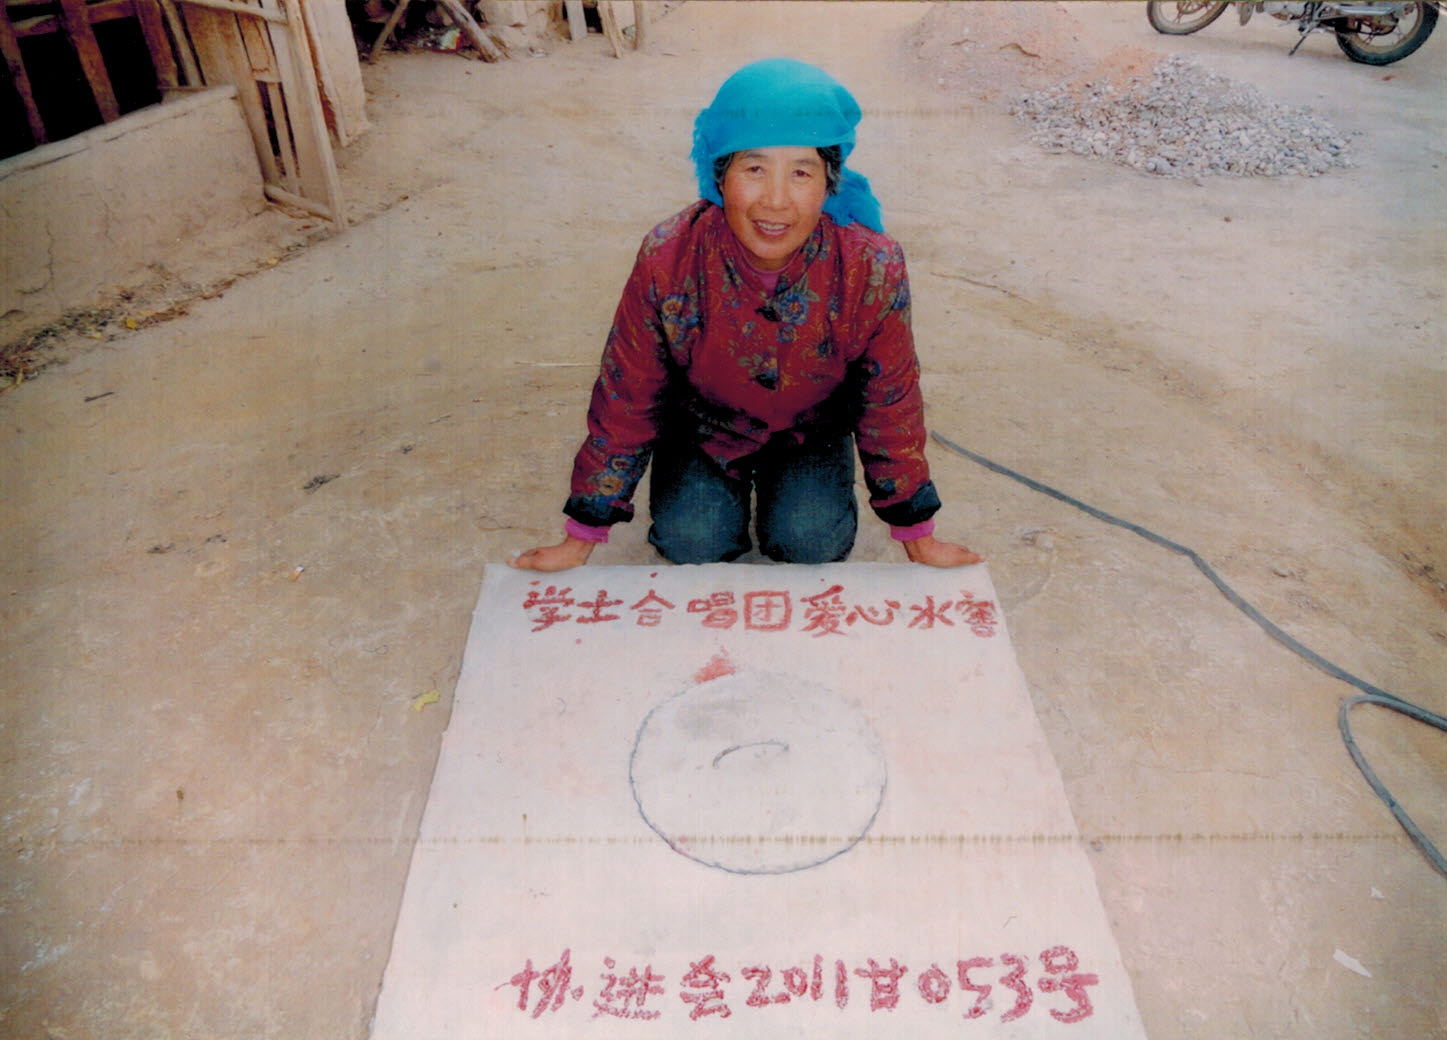 学士合唱团爱心水窖
协进会2011甘053号